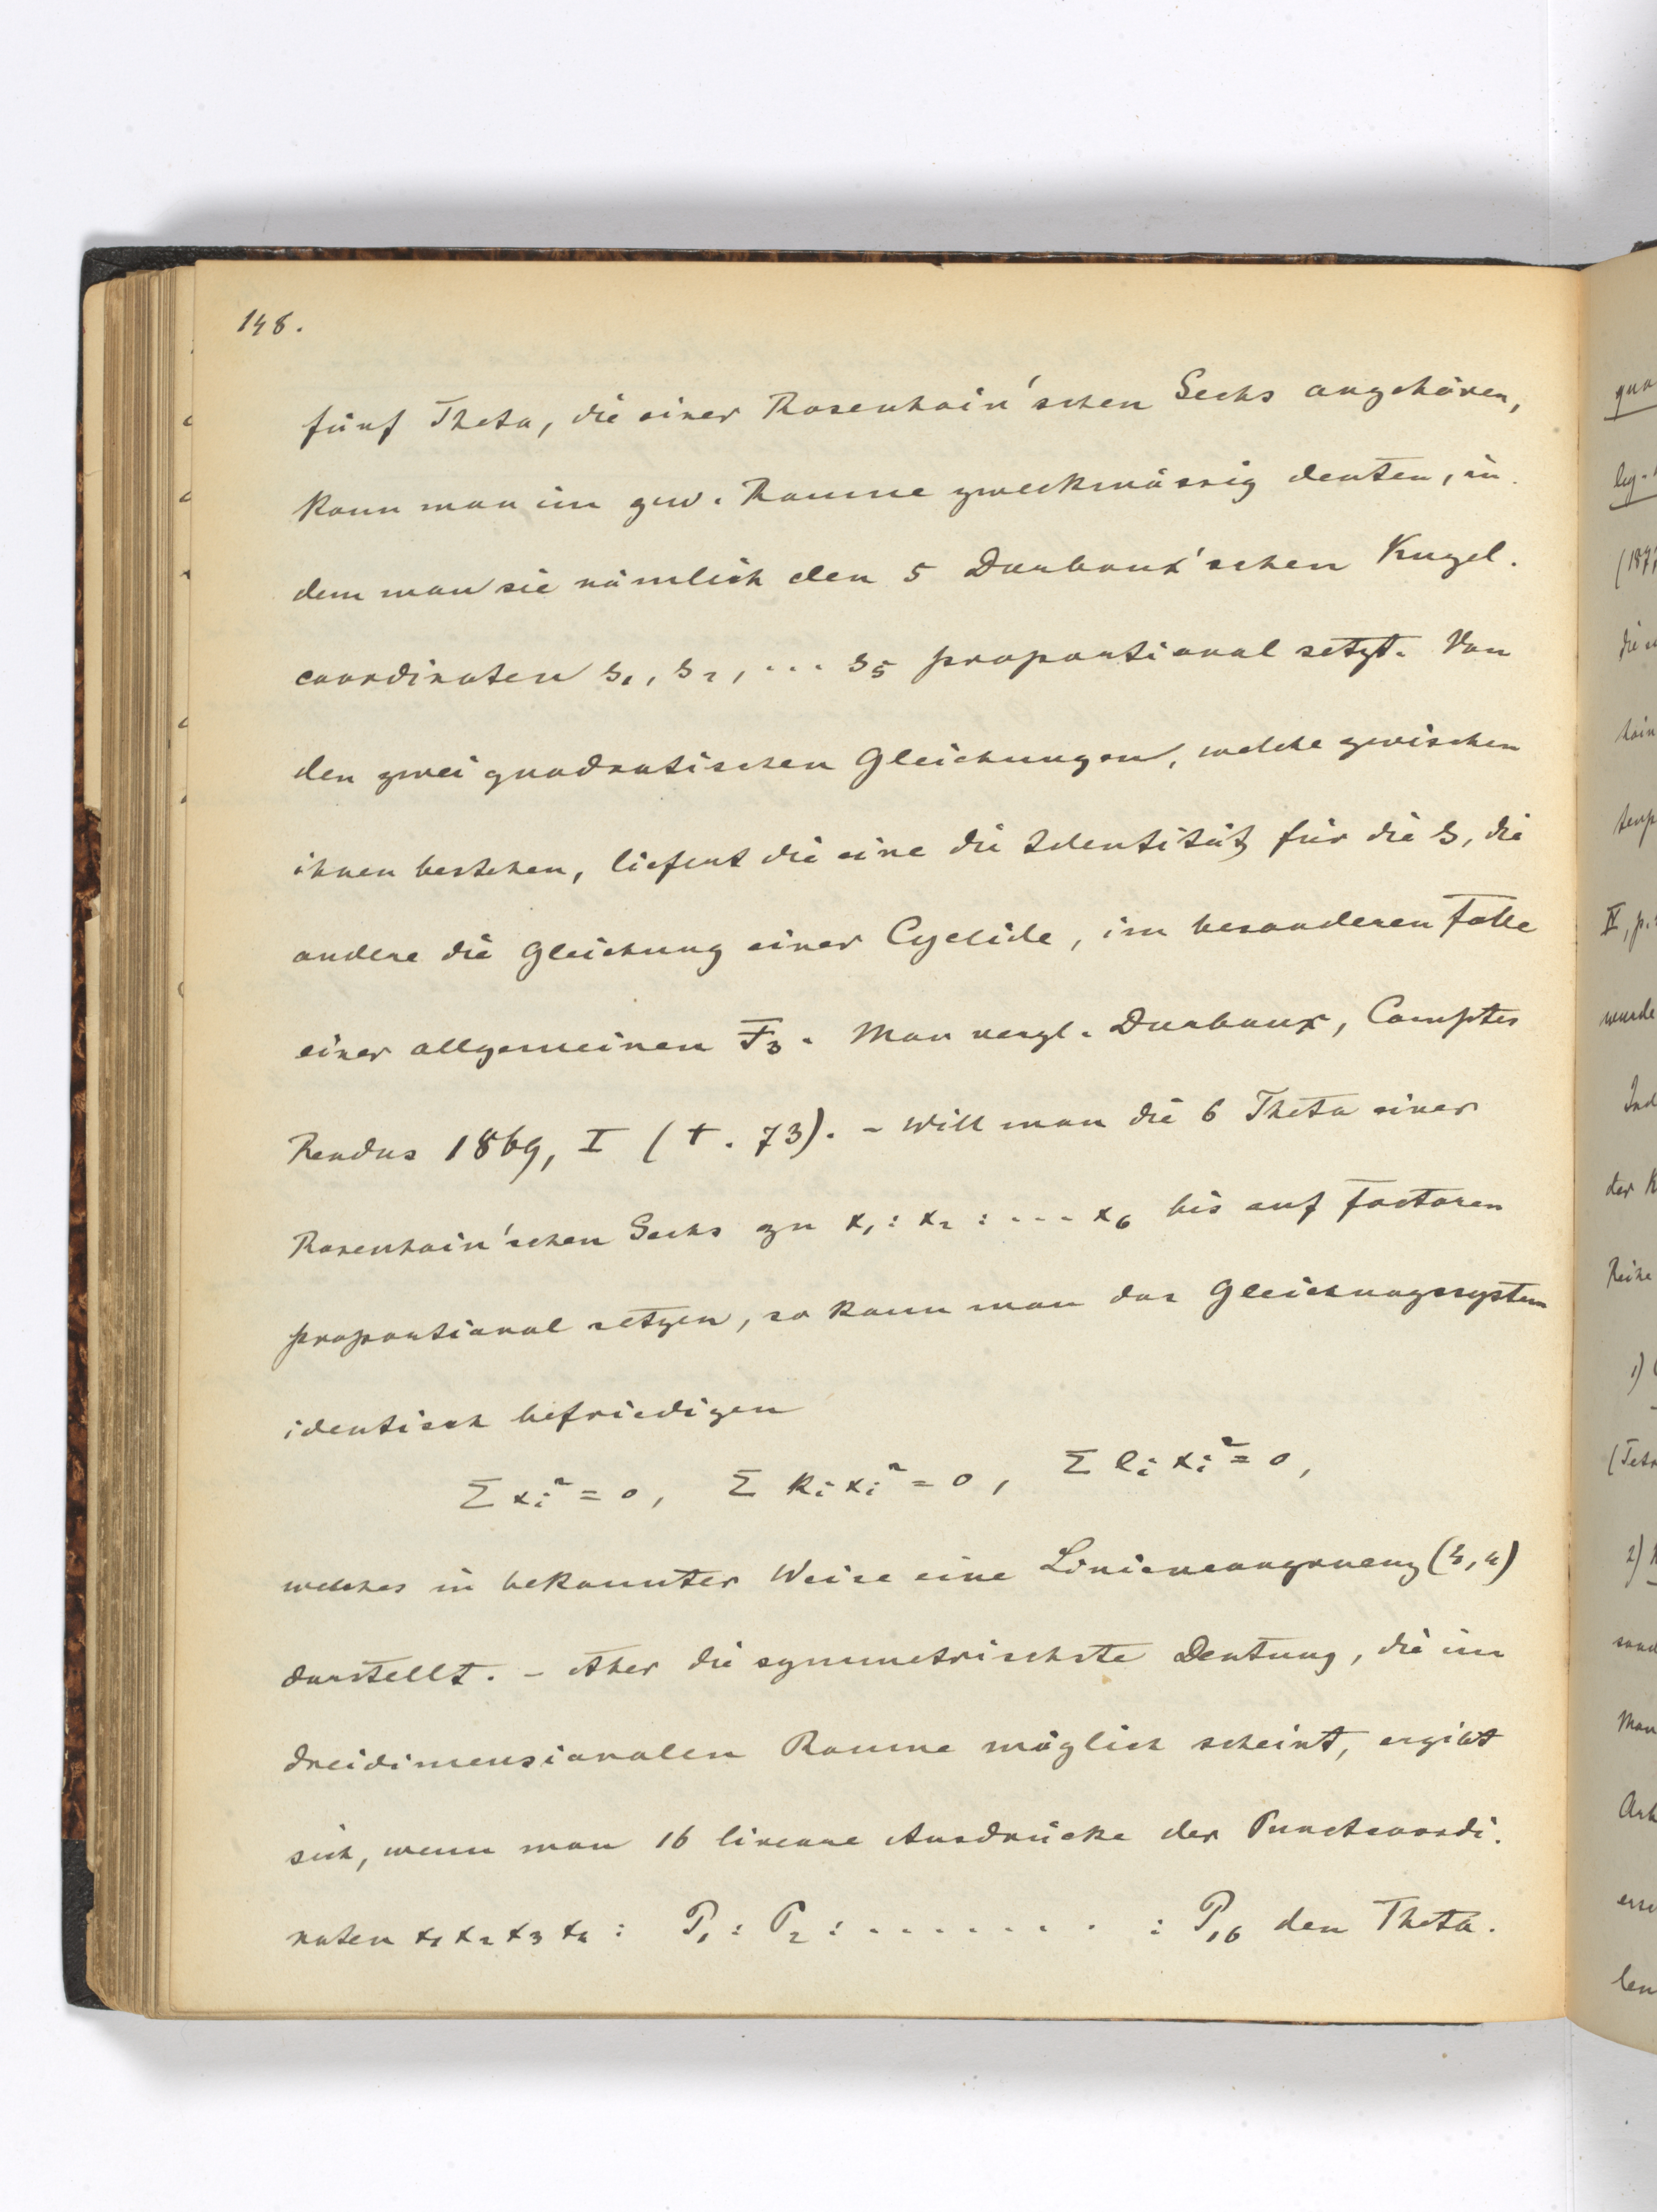 148.
fünf Theta, die einer Rosenhain'schen Sechs angehören,
kann man im gew. Raume zweckmässig deuten, in-
dem man sie nämlich den 5 Darboux'schen Kugel-
coordinaten s₁, s₂, ... s₅ proportional setzt. Von
den zwei quadratischen Gleichungen, welche zwischen
ihnen bestehen, liefert die eine die Identität für die s, die
andere die Gleichung einer Cyclide, im besonderen Falle
einer allgemeinen F₃. Man vergl. Darboux, Comptes
Rendus 1869, I (t. 73). - Will man die 6 Theta einer
Rosenhain'schen Sechs zu x₁ : x₂ : ... x₆ bis auf Factoren
proportional setzen, so kann man das Gleichungssystem
identisch befriedigen
Σ xᵢ² = 0, Σ kᵢ xᵢ² = 0, Σ lᵢ xᵢ² = 0,
welches in bekannter Weise eine Liniencongruenz (4,4)
darstellt. - Aber die symmetrischste Deutung, die im
dreidimensionalen Raume möglich scheint, ergibt
sich, wenn man 16 lineare Ausdrücke der Punctcoordi-
naten x₁ x₂ x₃ x₄ : P₁ : P₂ : . . . . . . . . : P₁₆ den Theta-